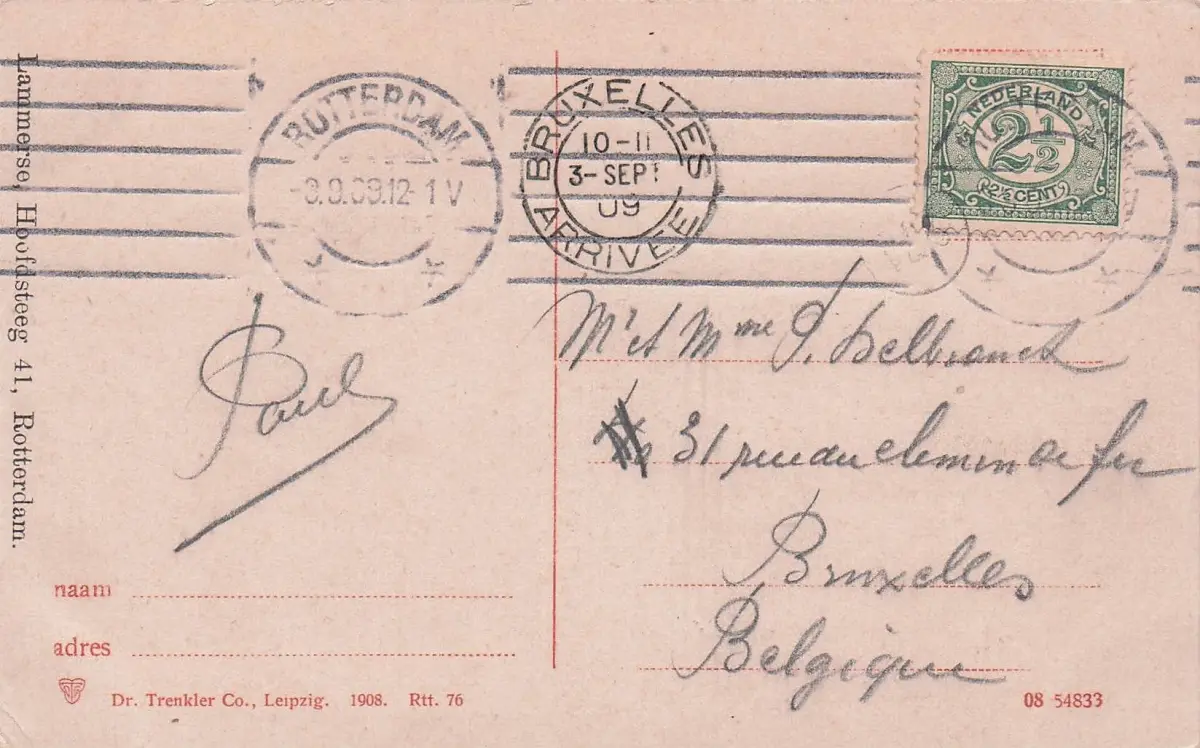 Lammerse, Hoofdsteeg 41, Rotterdam.
ROTTERDAM
12-1 V
BRUXELLES
10-11
3-SEPT
09
ARRIVÉE
NEDERLAND
2½
2½ CENT
Mr et Mme P. Delbranck
31 rue du chemin de fer
Bruxelles
Belgique
Paul
naam
adres
Dr. Trenkler Co., Leipzig. 1908. Rtt. 76
08 54833